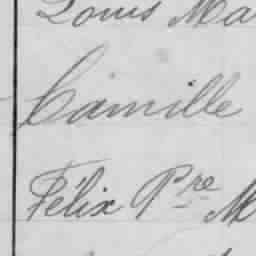 Louis Ma
Camille
Félix Pre M